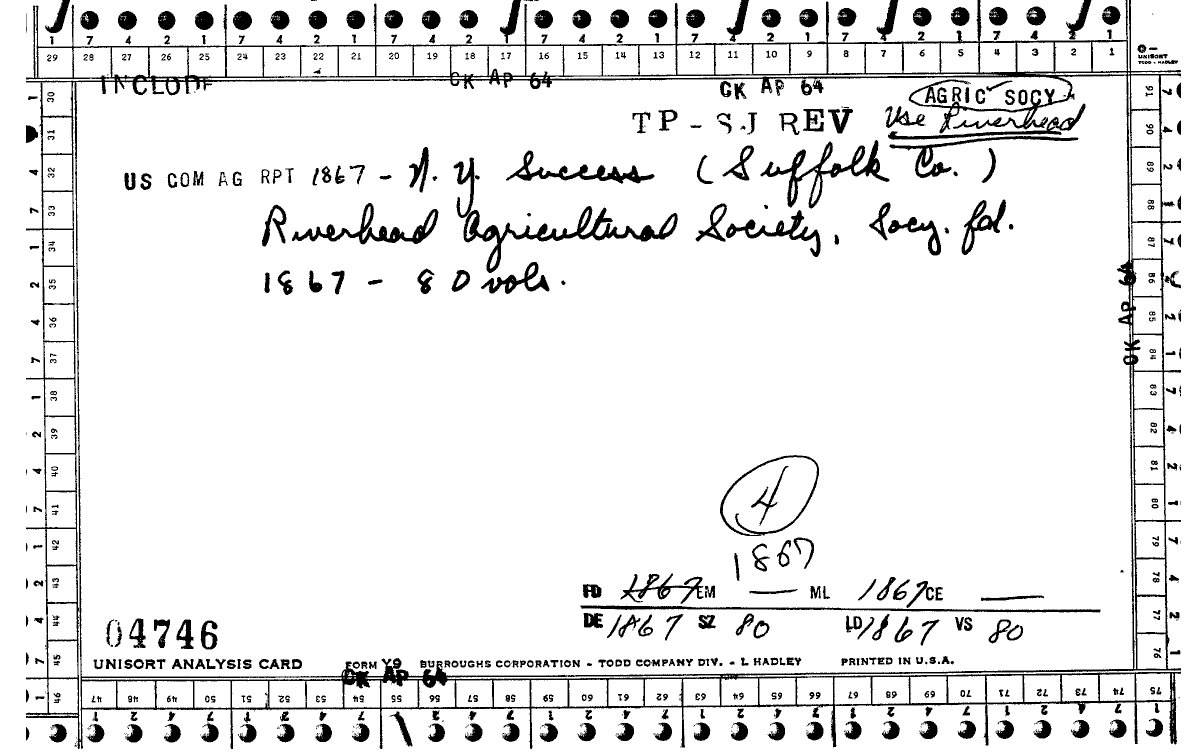 7 4 2 1 7 4 2 1 7 4 2 1 7 4 2 1 7 4 2 1 7 4 2 1 7 4 2 1
29 28 27 26 25 24 23 22 21 20 19 18 17 16 15 14 13 12 11 10 9 8 7 6 5 4 3 2 1
UNISORT
TODD - HADLEY
INCLODE
OK AP 64
OK AP 64
AGRIC SOCY
TP - SJ REV Use Riverhead
US COM AG RPT 1867 - N. Y. Success (Suffolk Co.)
Riverhead Agricultural Society, Socy. fd.
1867 - 80 vols.
OK AP 64
4
1867
FD 1867 EM — ML 1867 CE —
DE 1867 SZ 80 LD 1867 VS 80
04746
UNISORT ANALYSIS CARD FORM Y9 BURROUGHS CORPORATION - TODD COMPANY DIV. - L HADLEY PRINTED IN U.S.A.
OK AP 64
30 31 32 33 34 35 36 37 38 39 40 41 42 43 44 45 46
47 48 49 50 51 52 53 54 55 56 57 58 59 60 61 62 63 64 65 66 67 68 69 70 71 72 73 74 75
76 77 78 79 80 81 82 83 84 85 86 87 88 89 90 91